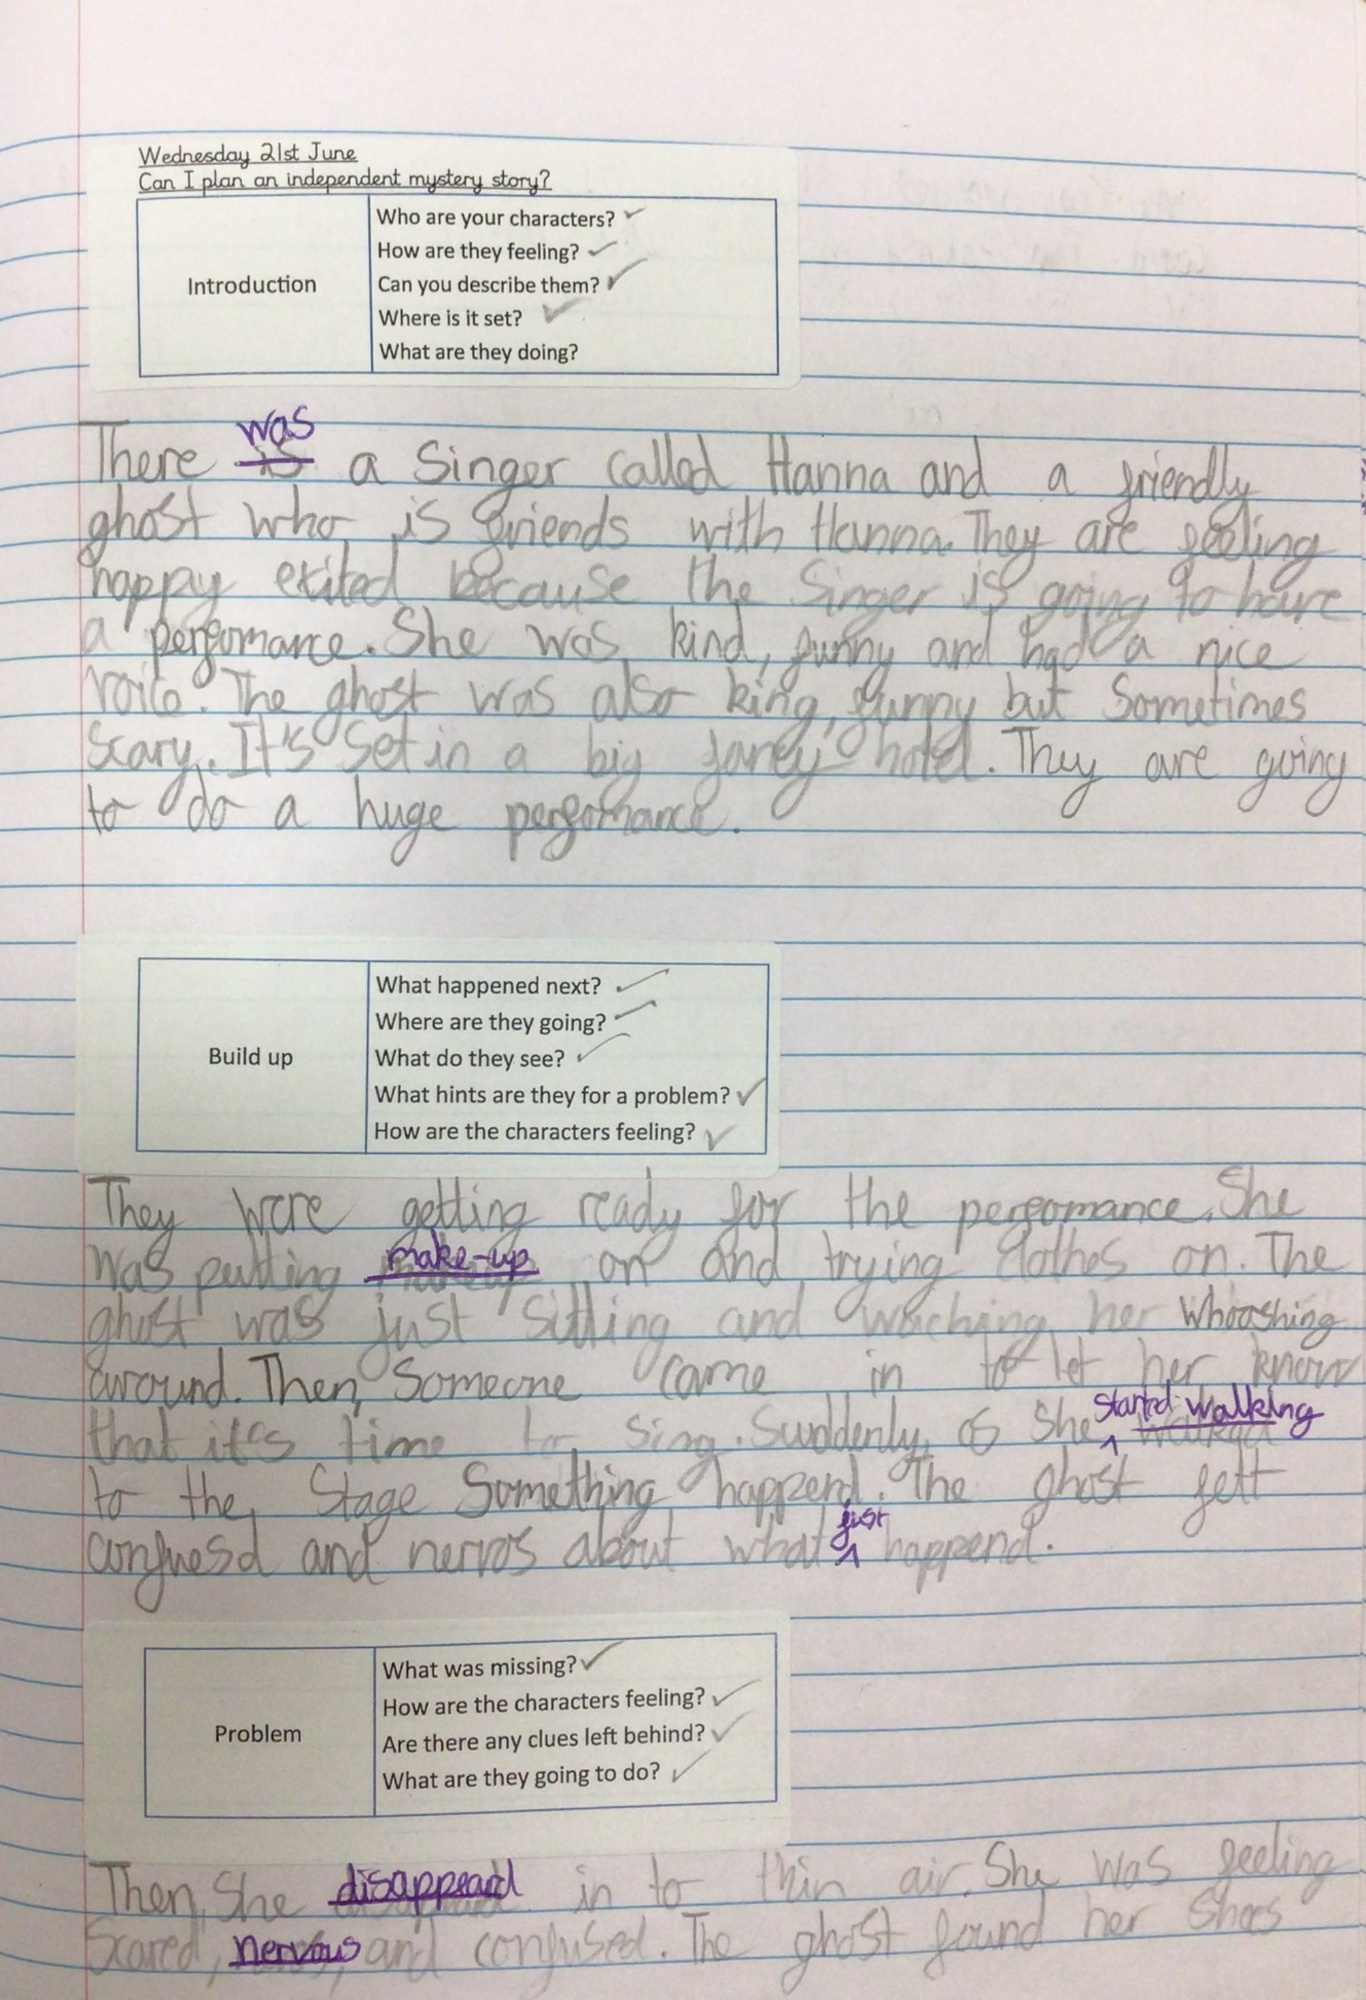 Wednesday 21st June
Can I plan an independent mystery story?
Introduction
Who are your characters?
How are they feeling?
Can you describe them?
Where is it set?
What are they doing?
was
There is a Singer called Hanna and a friendly
ghost who is friends with Hanna. They are feeling
happy exited because the Singer is going to have
a perfomance. She was kind, funny and had a nice
voice. The ghost was also king, funny but Sometimes
Scary. It's Set in a big fancy hotel. They are going
to do a huge perfomance.
Build up
What happened next?
Where are they going?
What do they see?
What hints are they for a problem?
How are the characters feeling?
They were getting ready for the perfomance. She
was putting make-up on and trying clothes on. The
ghost was just Sitting and waching her whooshing
around. Then, Someone came in to let her know
started walking
that it's time to Sing. Suddenly, as She
to the Stage Something happend. The ghost felt
just
confuesd and nervos about what happend.
Problem
What was missing?
How are the characters feeling?
Are there any clues left behind?
What are they going to do?
Then, She disappeard in to thin air. She was feeling
Scared, nervous, and confused. The ghost found her Shoes